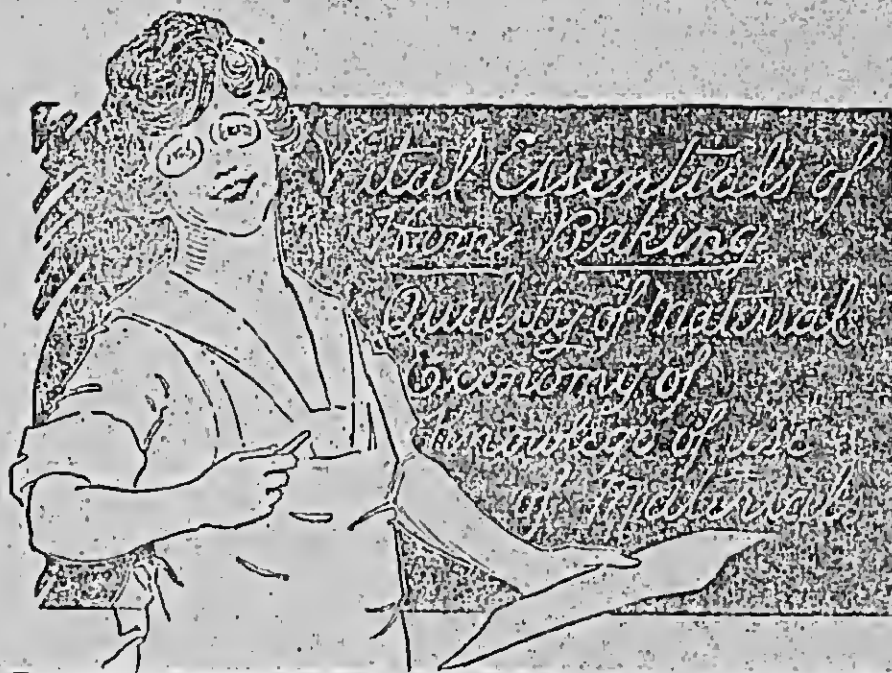 Vital Essentials of
Home Baking
Quality of Material
Economy of
Knowlege of use
of Material